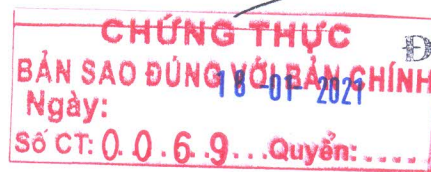 CHỨNG THỰC
Đ
BẢN SAO ĐÚNG VỚI BẢN CHÍNH
18 -01- 2021
Ngày:
Số CT: 0.0.6.9...Quyển:.....